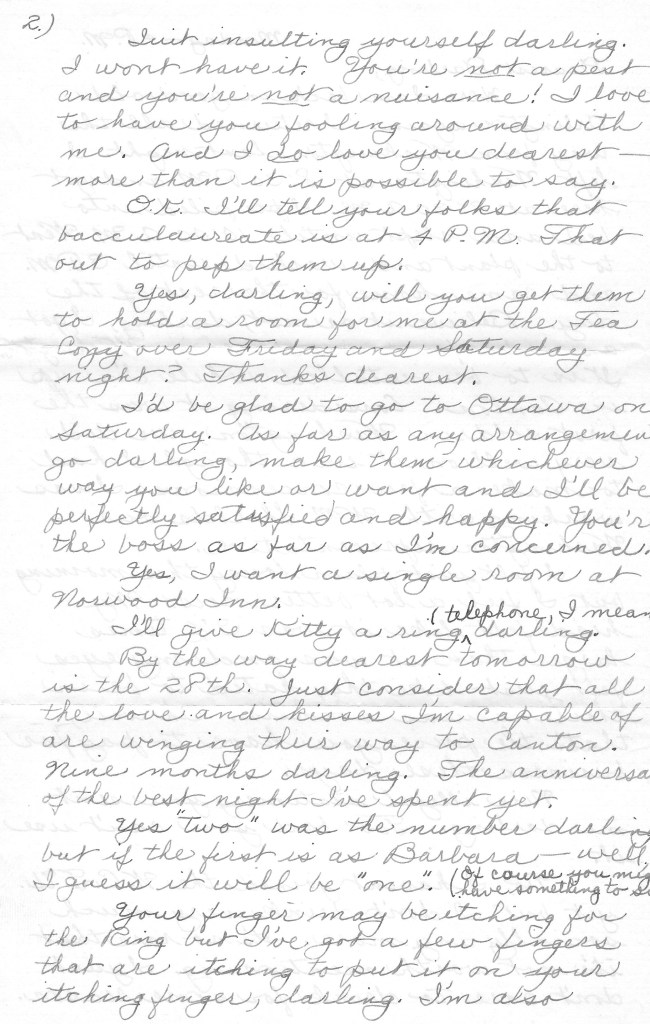 2.)
Quit insulting yourself darling.
I wont have it. You're not a pest
and you're not a nuisance! I love
to have you fooling around with
me. And I do love you dearest —
more than it is possible to say.
O.K. I'll tell your folks that
bacculaureate is at 4 P.M. That
out to pep them up.
Yes, darling, will you get them
to hold a room for me at the Tea
Cozy over Friday and Saturday
night? Thanks dearest.
I'd be glad to go to Ottawa on
Saturday. As far as any arrangemen
go darling, make them whichever
way you like or want and I'll be
perfectly satisfied and happy. You'r
the boss as far as I'm concerned.
Yes, I want a single room at
Norwood Inn.
(telephone, I mean
I'll give Kitty a ring ^ darling.
By the way dearest tomorrow
is the 28th. Just consider that all
the love and kisses I'm capable of
are winging their way to Canton.
Nine months darling. The anniversa
of the best night I've spent yet.
Yes "two" was the number darling
but if the first is as Barbara — well,
I guess it will be "one". (Of course you mig
have something to sa
Your finger may be itching for
the Ring but I've got a few fingers
that are itching to put it on your
itching finger, darling. I'm also